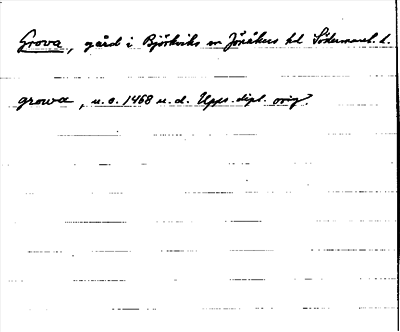 Grova, gård i Björkviks sn Jönåkers hd Södermanl. l.
growa, u.o. 1468 u.d. Upps. dipl. orig.